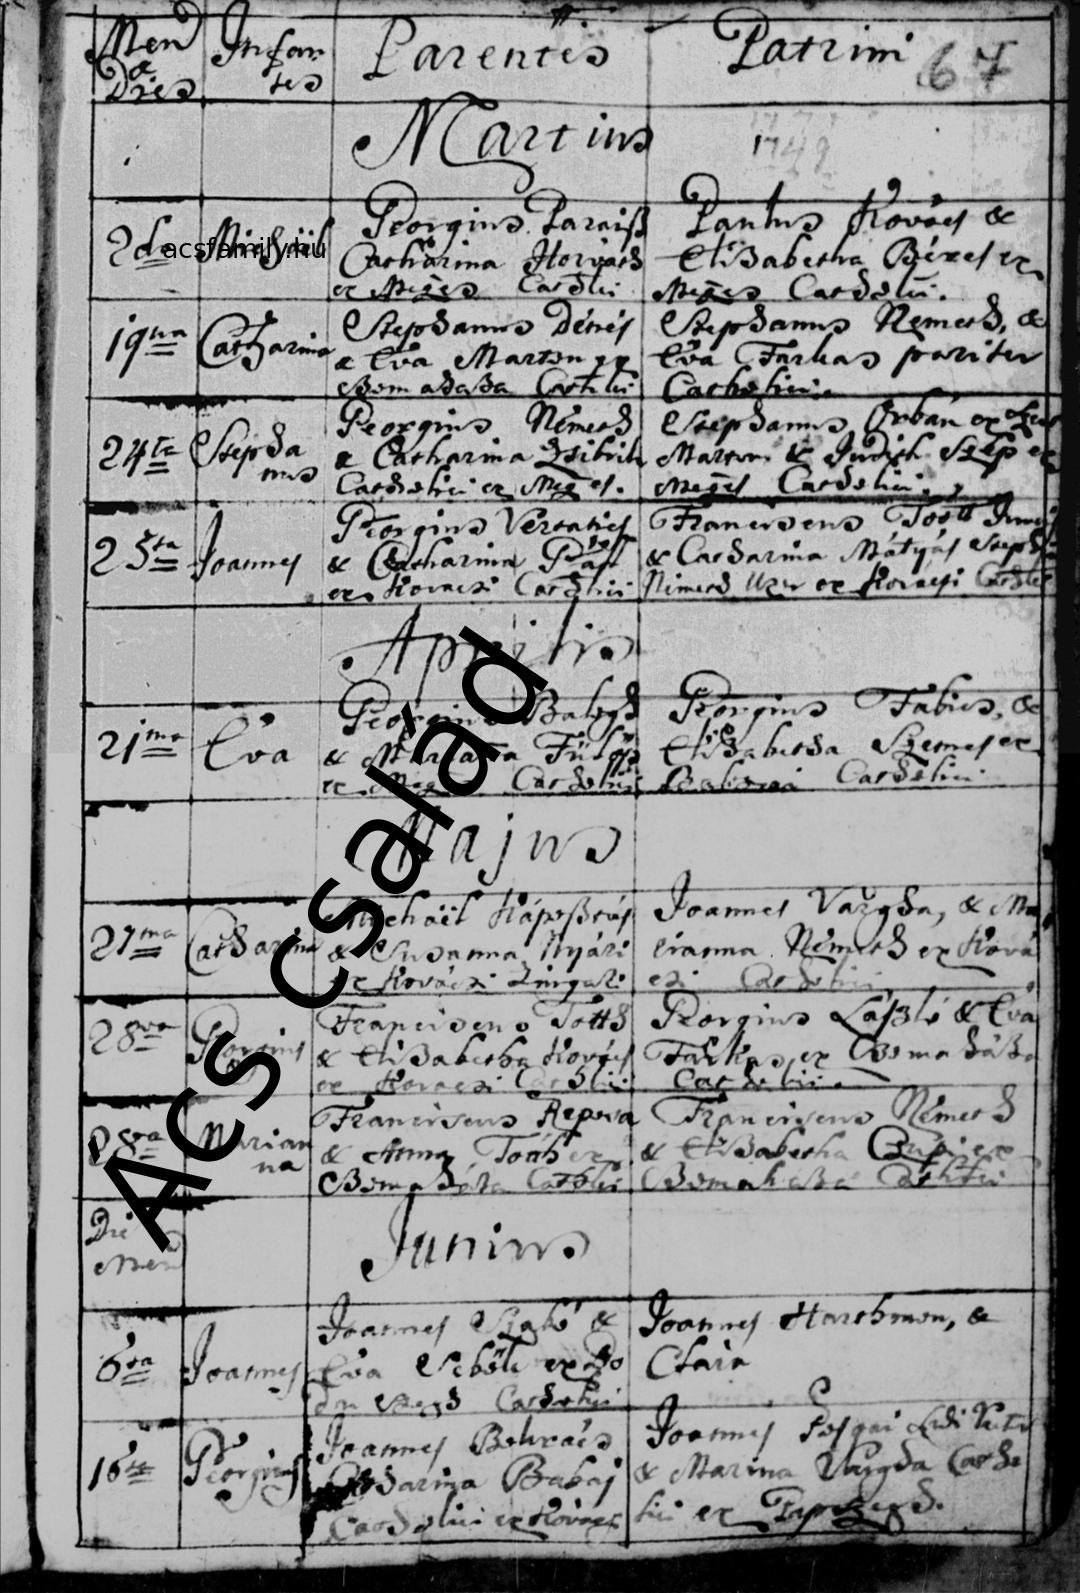 Men
&
Dies
Infan
tes
Parentes
Patrini
67
Martius
1748
2da
Michaël
Georgius Paraiß
Catharina Horváth
ex Meges Cathlici
Paulus Kovács &
Elisabetha Béres ex
Meges Catholici.
19na
Catharina
Stephanus Dénes
& Eva Marton ex
Csemadaßa Cathlici
Stephanus Nemeth, &
Eva Farkas pariter
Catholici.
24ta
Stepha
nus
Georgius Németh
& Catharina Zsibrik
Catholici ex Meges.
Stephanus Orbán ex
Marton & Judith Szép ex
Meges Catholici.
25ta
Joannes
Georgius
& Catharina
ex Kovacsi Cathlici
Franciscus Toth
& Catharina Mátyás Steph
Nimeth Uxor ex Kovácsi Cathlici
Aprilis
21ma
Eva
Georgius Balogh
& Fülöp
ex Meges Catholici
Georgius Fabics, &
Elisabetha Szemes ex
Catholici
Majus
21ma
Catharina
Michaël Káposztás
& Susanna Nyári
ex Kovácsi Zingari
Joannes Vargha, & Ma
rianna Németh ex Ková
csi Catholici
28va
Georgius
Franciscus Totth
& Elisabetha Kovács
ex Kovacsi Cathlici
Georgius László & Eva
Farkas, ex Csemahásza
Catholici.
28va
Marian
na
Franciscus Repssa
& Anna Tóth ex
Csemaháza Cathlici
Franciscus Németh
& Elisabetha Czupi ex
Csemahásza Cathlici
Die
Mens
Junius
6ta
Joannes
Joannes Szabó &
Eva Sebők ex
Catholici
Joannes Harshman, &
Clara
16ta
Georgius
Joannes
Catharina Babaj
Catholici ex Kovács
Joannes
& Marina Vargha Catho
lici ex
acsfamily.hu
Ács család